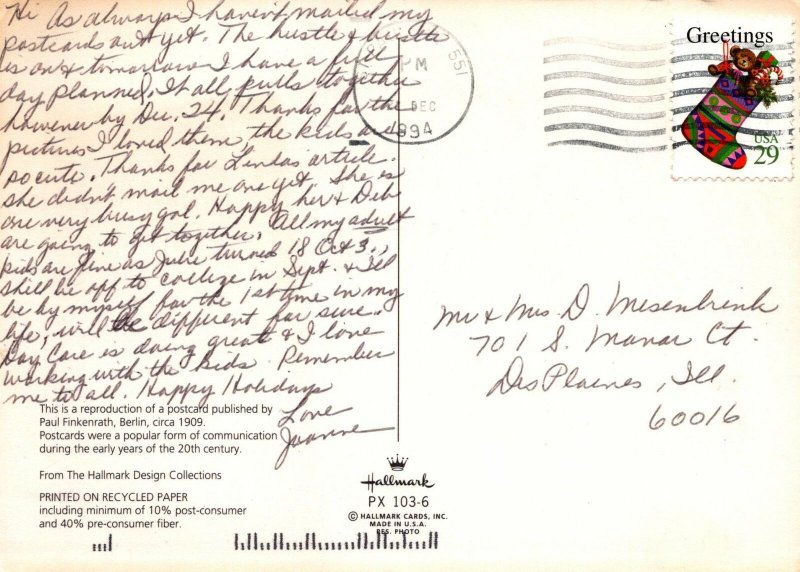 Hi As always I haven't mailed my
postcards out yet. The hustle & bustle
is on & tomorrow I have a full
day planned. It all pulls together
however by Dec. 24. Thanks for the
pictures I loved them, the kids are
so cute. Thanks for Lindas article.
she didn't mail me one yet. She is
one very busy gal. Happy her & Deb
are going to get together. All my adult
kids are fine as Julie turned 18 Oct 3.,
shill be off to college in Sept. & Ill
be by myself for the 1st time in my
life, will be different for sure.
Day Care is doing great & I love
working with the kids. Remember
me to all. Happy Holidays
Love
Joanne
This is a reproduction of a postcard published by
Paul Finkenrath, Berlin, circa 1909.
Postcards were a popular form of communication
during the early years of the 20th century.
From The Hallmark Design Collections
PRINTED ON RECYCLED PAPER
including minimum of 10% post-consumer
and 40% pre-consumer fiber.
Hallmark
PX 103-6
© HALLMARK CARDS, INC.
MADE IN U.S.A.
RES. PHOTO
551
PM
DEC
1994
Greetings
USA
29
Mr & Mrs D. Mesenbrink
701 S. Manor Ct.
Des Plaines, Ill.
60016